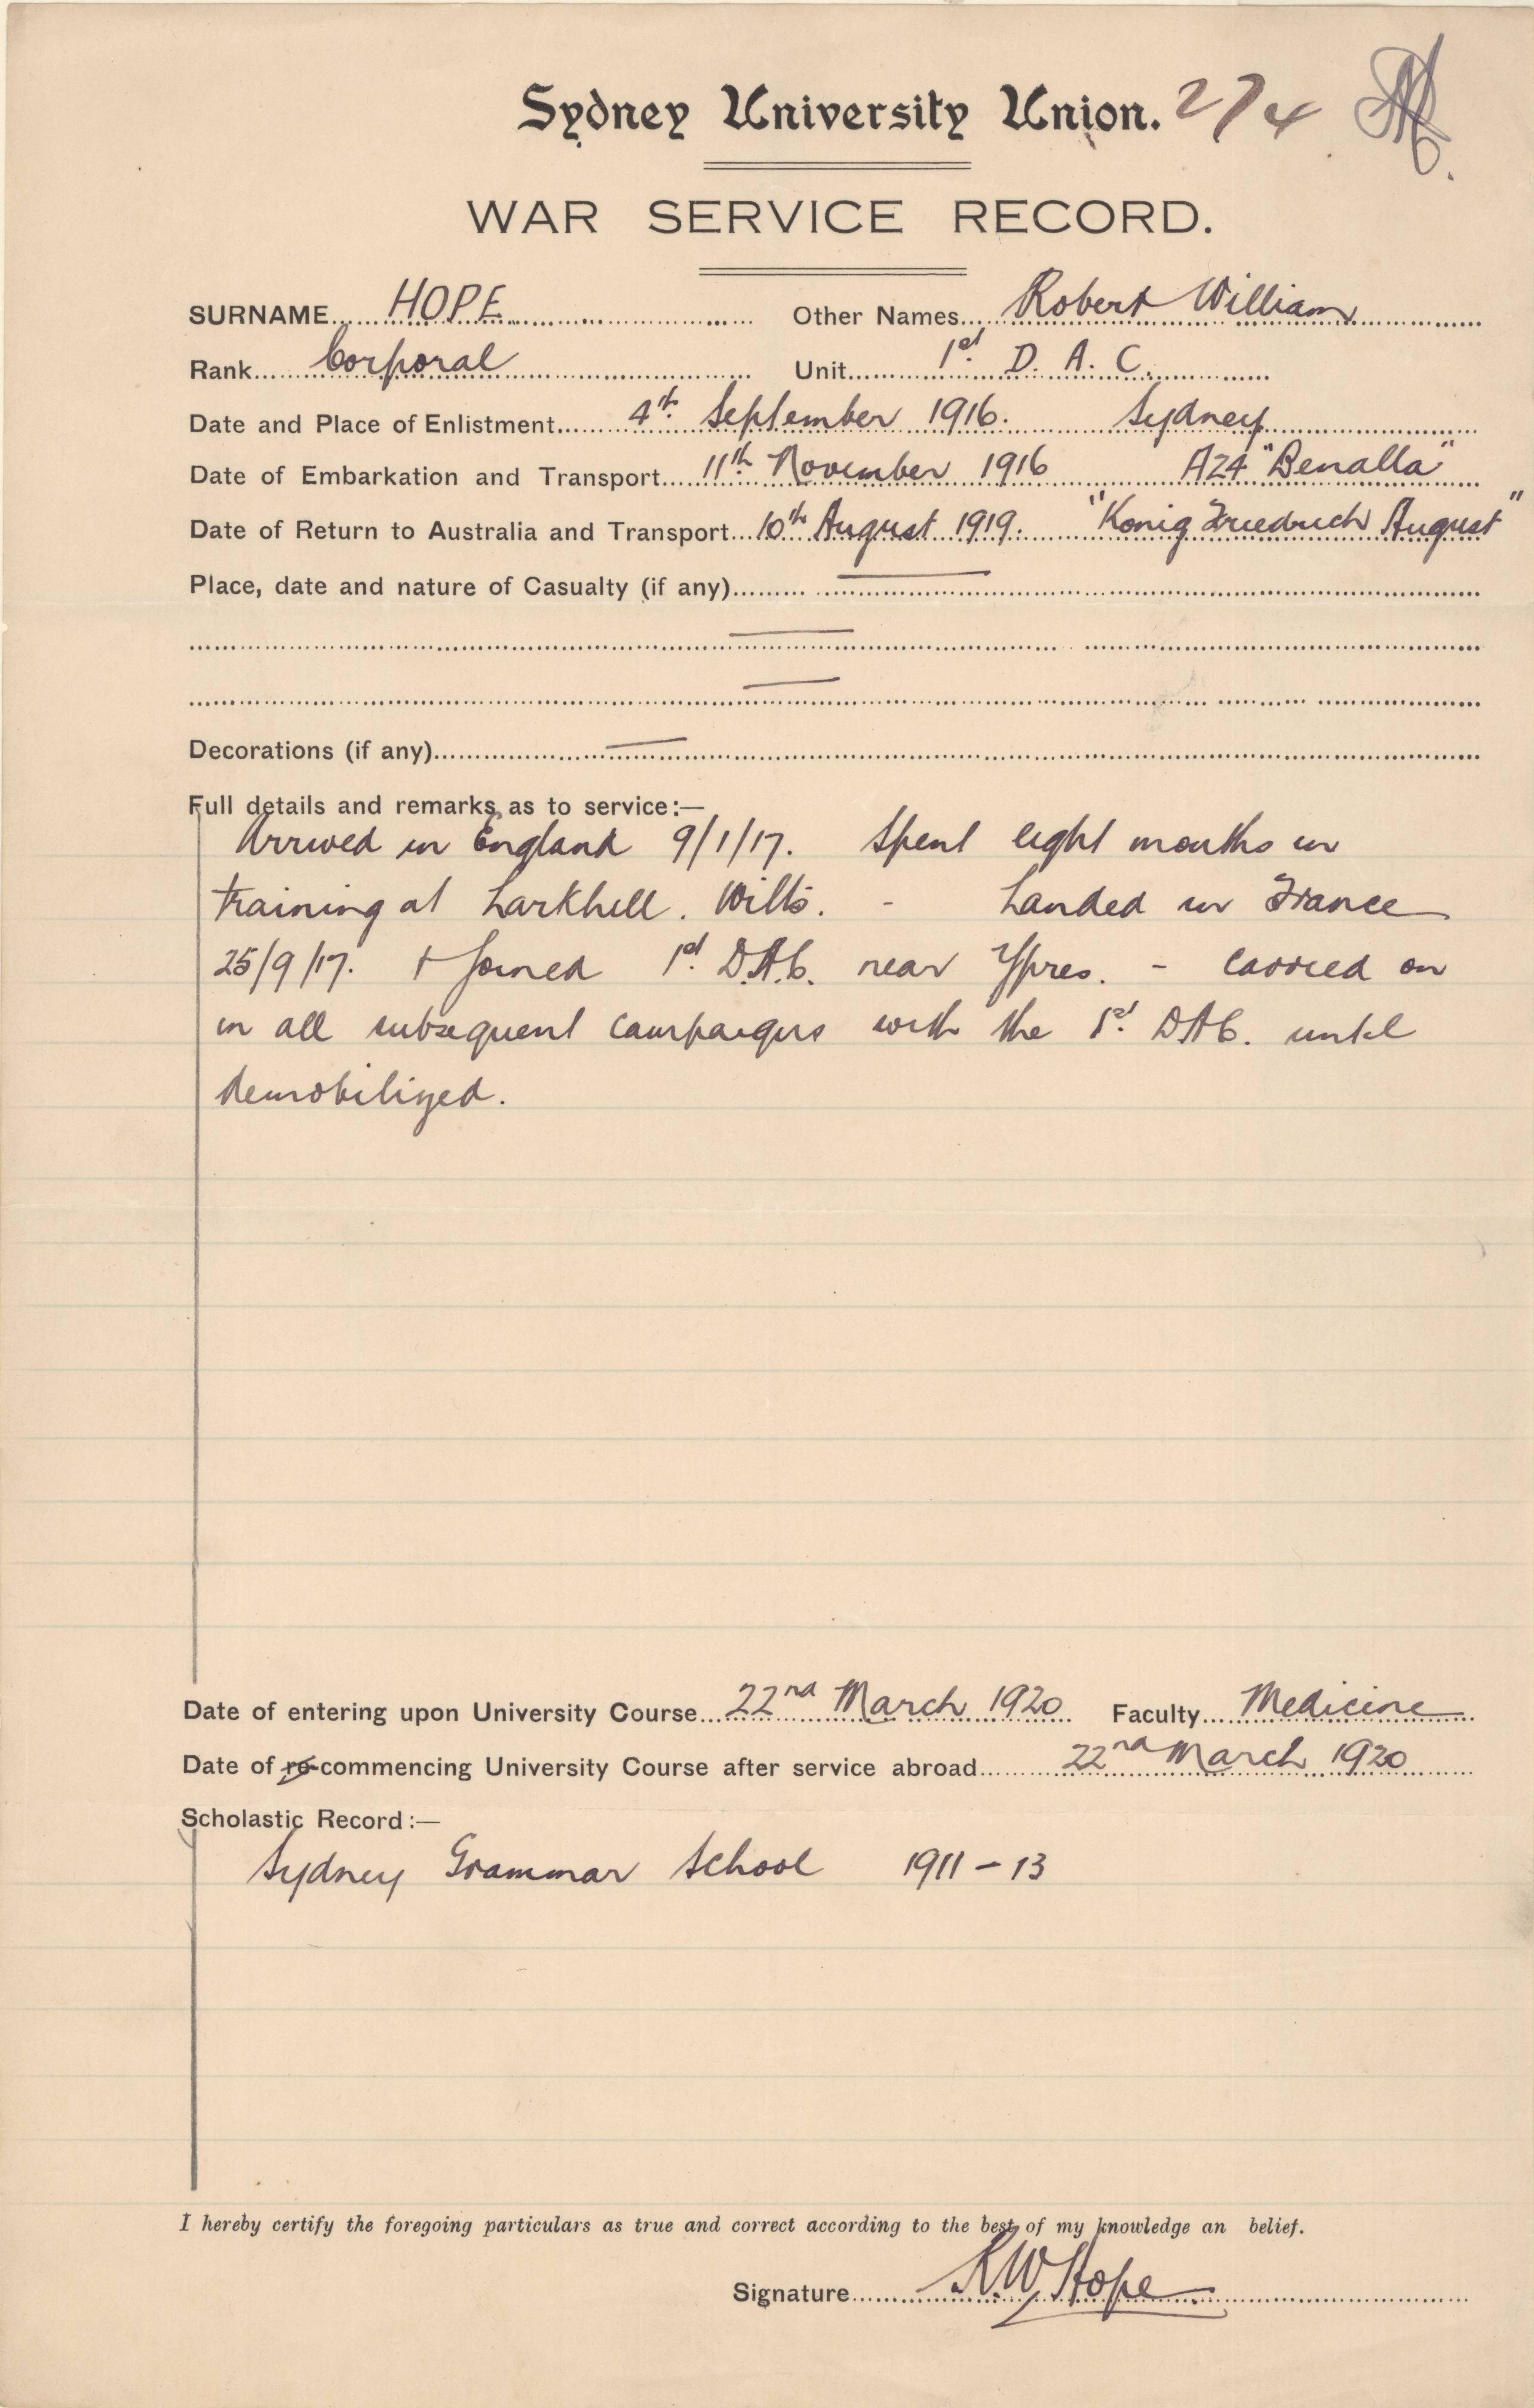 Sydney University Union. 274
WAR SERVICE RECORD.
SURNAME HOPE Other Names Robert William
Rank Corporal Unit 1st D. A. C.
Date and Place of Enlistment 4th September 1916. Sydney
Date of Embarkation and Transport 11th November 1916 A24 "Benalla"
Date of Return to Australia and Transport 10th August 1919. "Konig Friedrich August"
Place, date and nature of Casualty (if any)
Decorations (if any)
Full details and remarks as to service:—
Arrived in England 9/1/17. Spent eight months in
training at Larkhill. Wilts. - Landed in France
25/9/17. + joined 1st D.A.C. near Ypres. - carried on
in all subsequent campaigns with the 1st DAC. until
demobilized.
Date of entering upon University Course 22nd March 1920 Faculty Medicine
Date of re-commencing University Course after service abroad 22nd March 1920
Scholastic Record:—
Sydney Grammar School 1911-13
I hereby certify the foregoing particulars as true and correct according to the best of my knowledge an belief.
Signature R.W. Hope